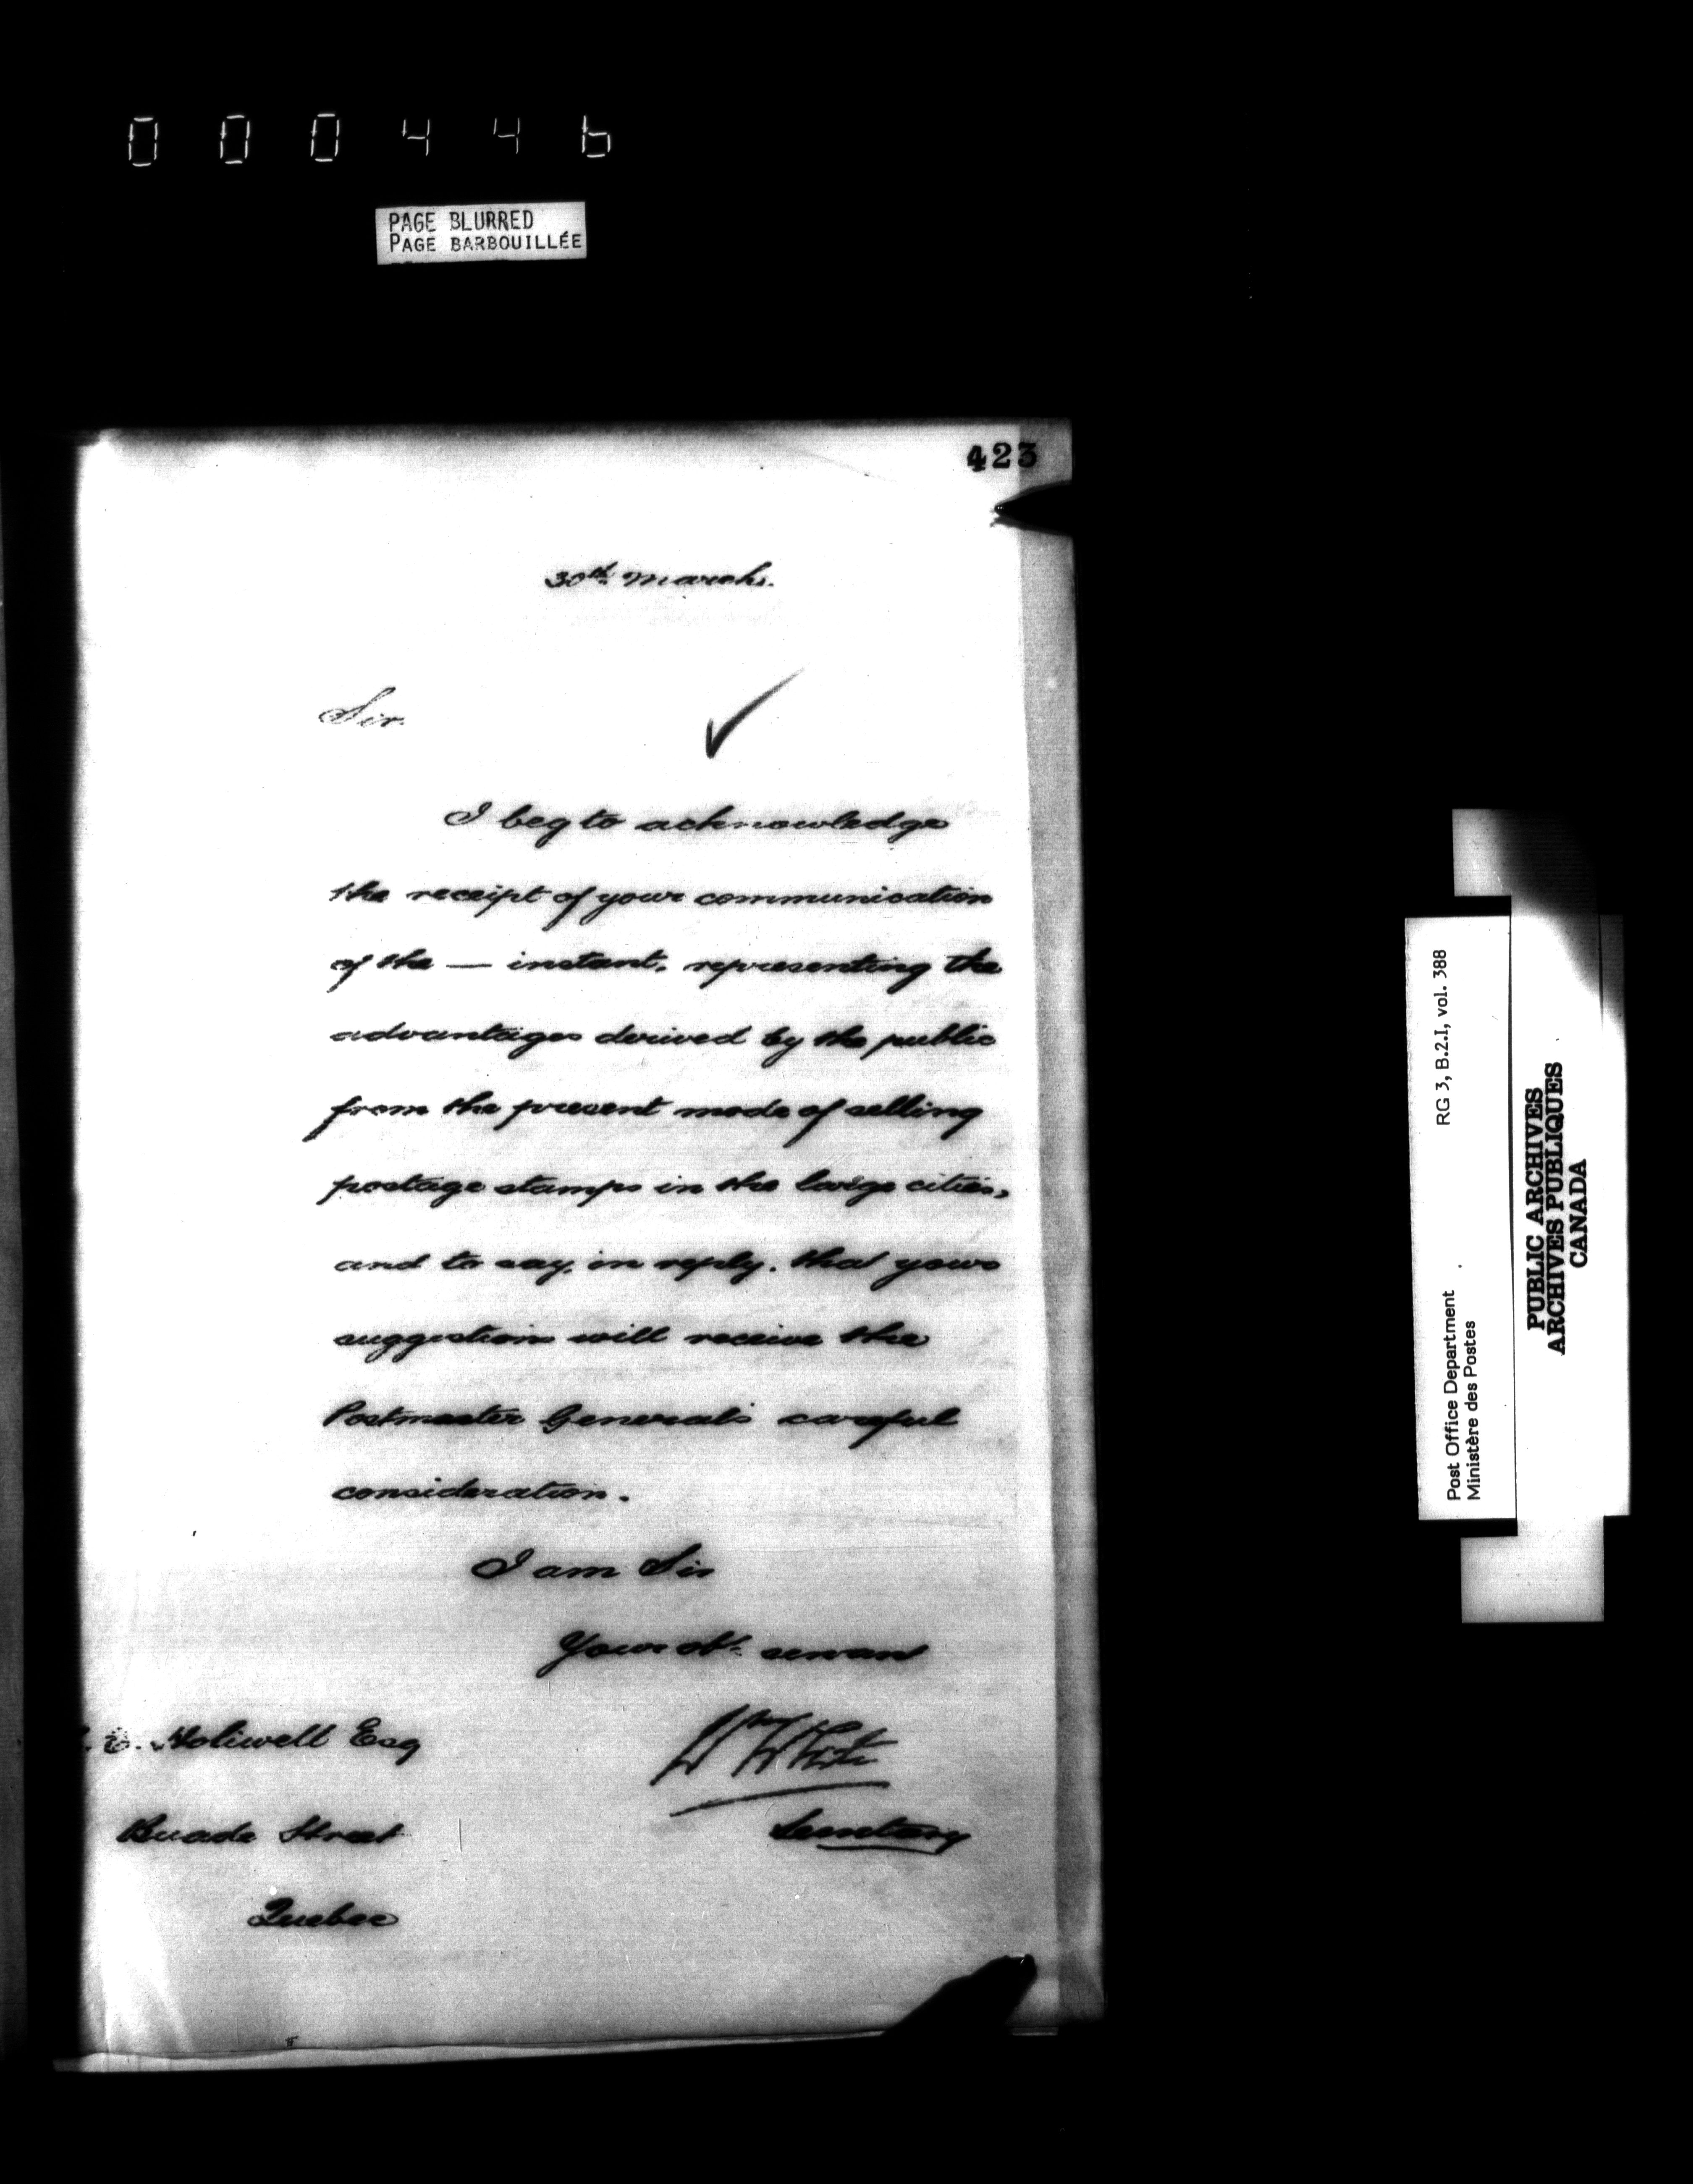 000446
PAGE BLURRED
PAGE BARBOUILLÉE
423
30th March.
Sir.
I beg to acknowledge
the receipt of your communication
of the — instant, representing the
advantages derived by the public
from the present mode of selling
postage stamps in the large cities,
and to say, in reply, that your
suggestion will receive the
Postmaster General's careful
consideration.
I am Sir
Your obt. servant
Holiwell Esq
Wm White
Buade Street
Secretary
Quebec
RG 3, B.2.I, vol. 388
Post Office Department
Ministère des Postes
PUBLIC ARCHIVES
ARCHIVES PUBLIQUES
CANADA